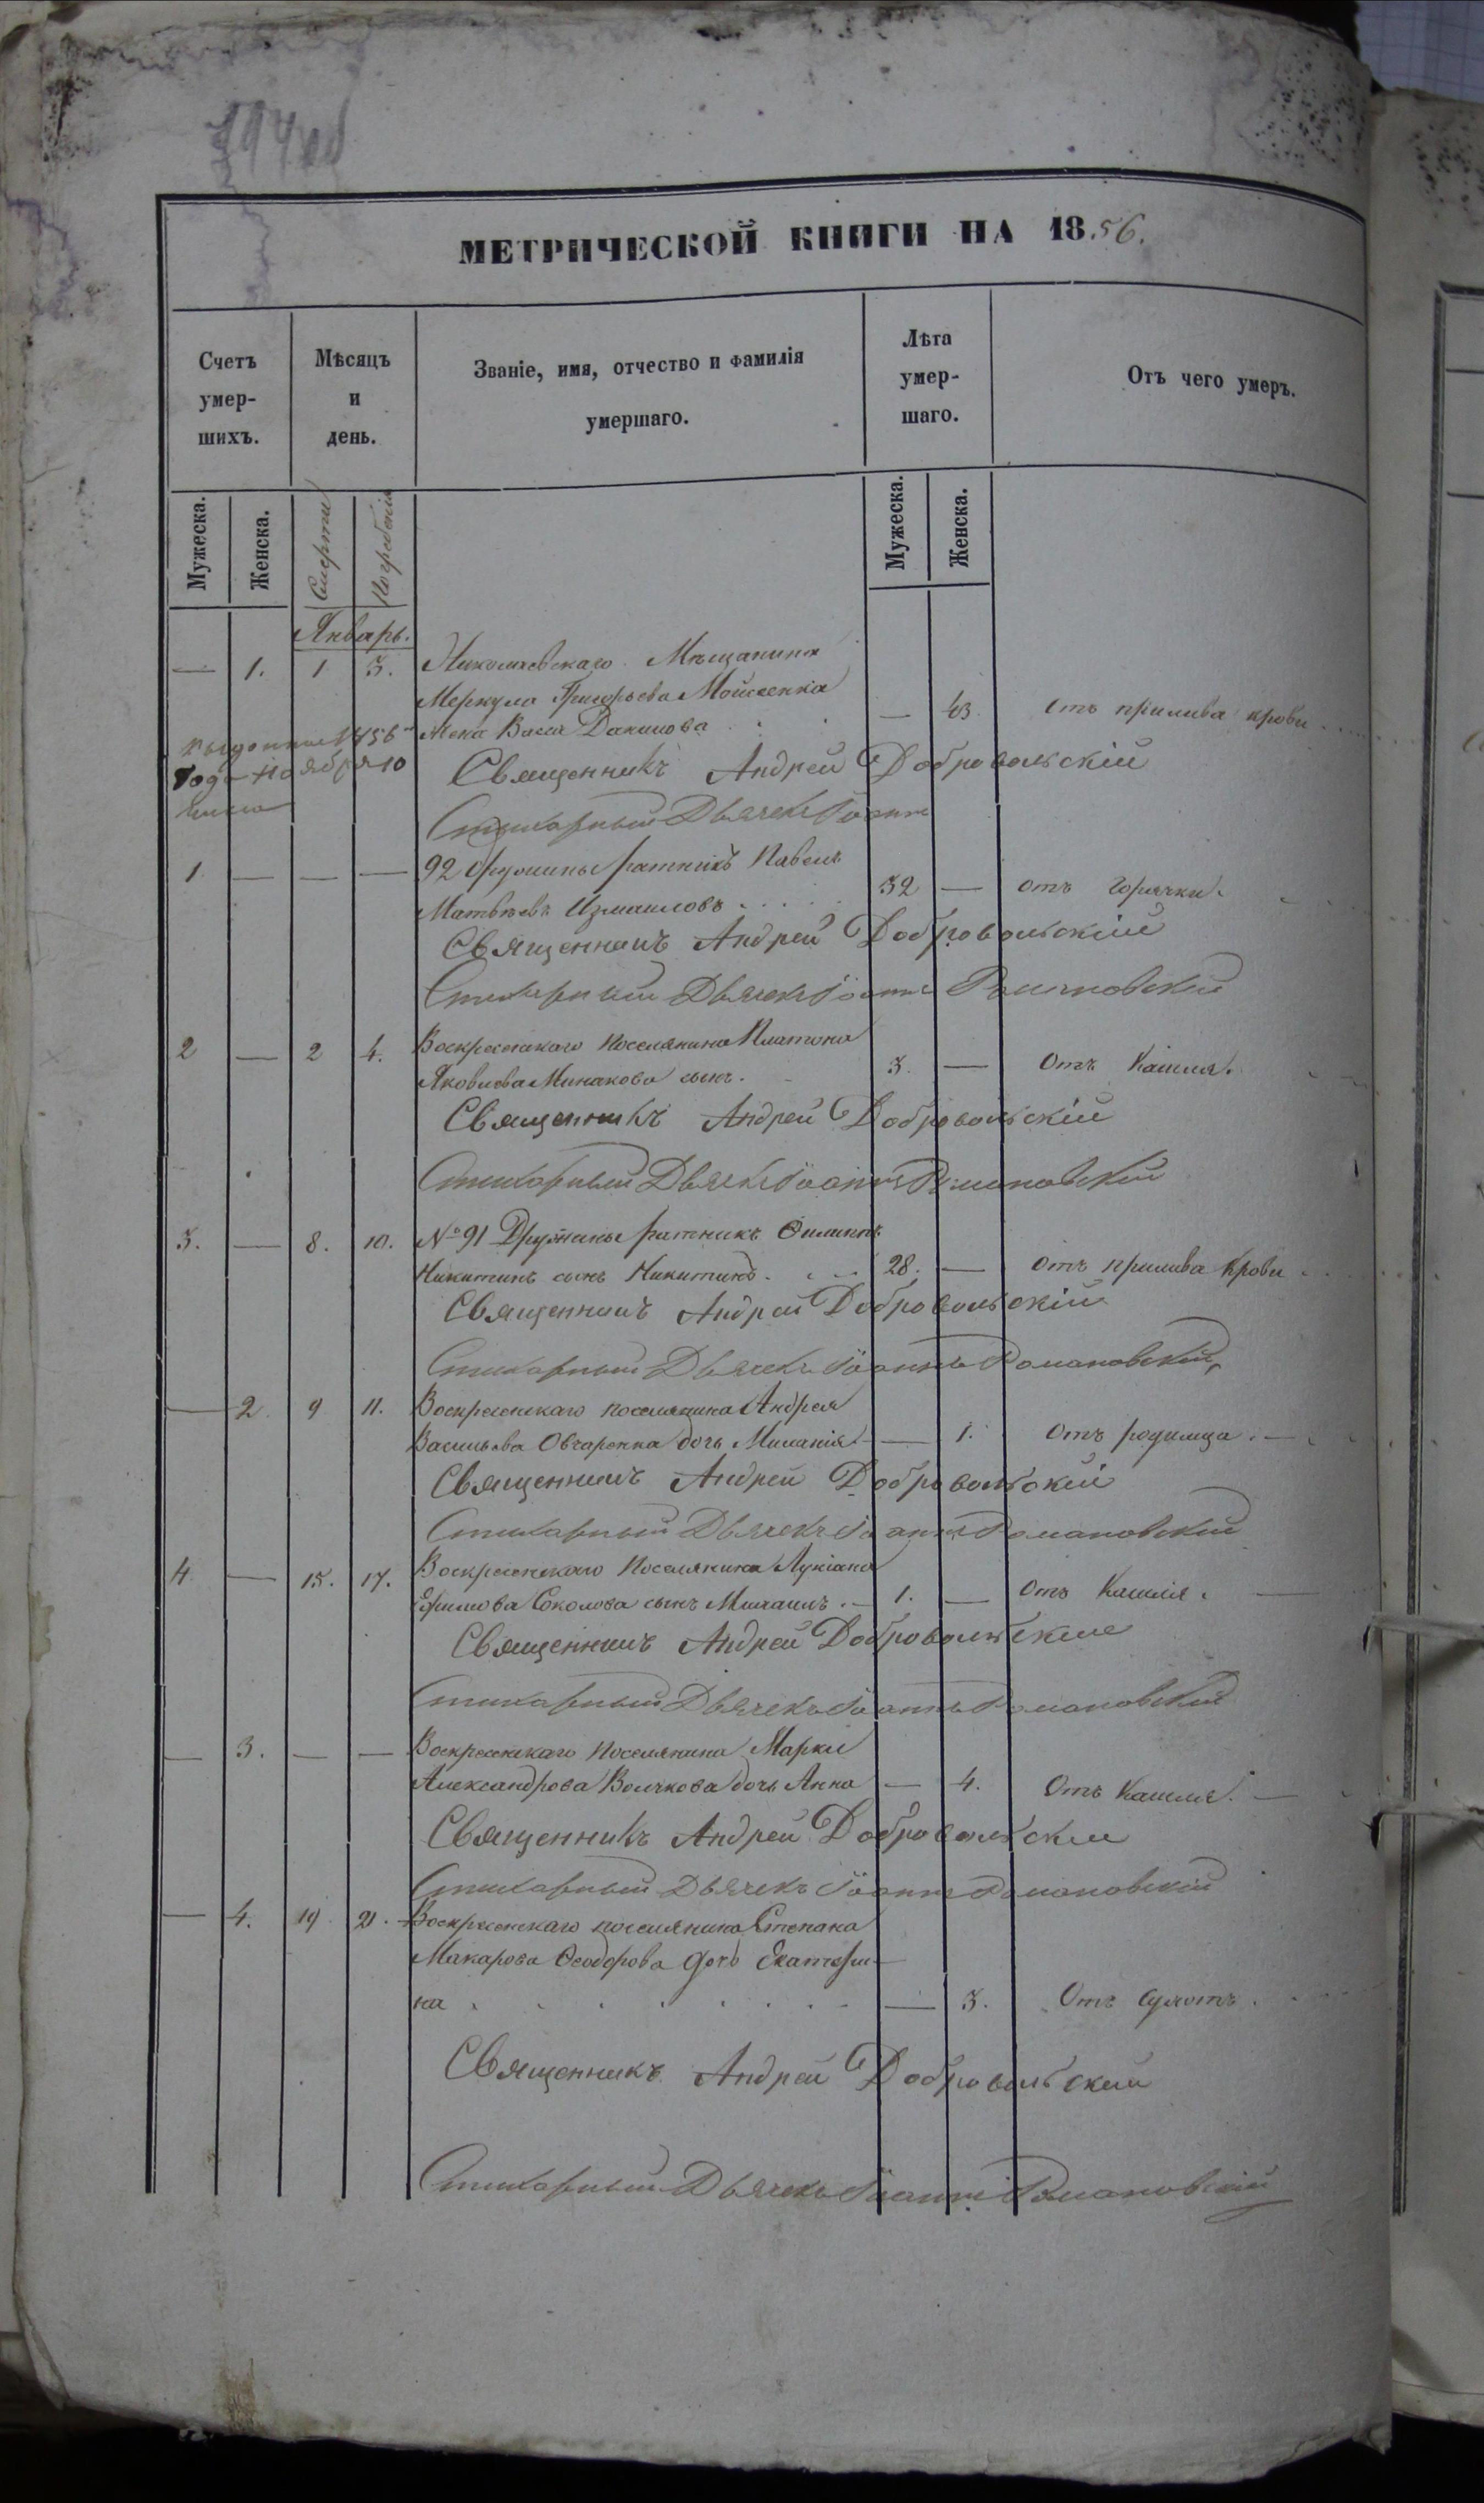 МЕТРИЧЕСКОЙ КНИГИ НА 1856.
Счетъ умер-шихъ.
Мѣсяцъ и день.
Званіе, имя, отчество и фамилія умершаго.
Лѣта умер-шаго.
Отъ чего умеръ.
Мужеска. Женска. Смерти Погребенія Мужеска. Женска.
Январь.
— 1. 1 3. Николаевскаго Мѣщанина
Меркула Григорьева Мойсеенка
жена Васса Данилова — 43 отъ прилива крови
1856
года Ноября 10
числа
Священникъ Андрей Добровольскій
Стихарный Дьячекъ Іоаннъ
1 — — — 92 дружины ратникъ Павелъ
Матвѣевъ Измаиловъ 32 — отъ горячки.
Священникъ Андрей Добровольскій
Стихарный Дьячекъ Іоаннъ Романовскій
2 — 2 4. Воскресенскаго поселянина Платона
Яковлева Минакова сынъ. 3. — Отъ кашля.
Священникъ Андрей Добровольскій
Стихарный Дьячекъ Іоаннъ Романовскій
3. — 8. 10. № 91 Дружины ратникъ Филиппъ
Никитинъ сынъ Никитинъ. 28. — отъ прилива крови
Священникъ Андрей Добровольскій
Стихарный Дьячекъ Іоаннъ Романовскій
— 2. 9 11. Воскресенскаго поселянина Андрея
Васильева Овчаренка дочь Миланія. — 1. Отъ родимца.
Священникъ Андрей Добровольскій
Стихарный Дьячекъ Іоаннъ Романовскій
4 — 15. 17. Воскресенскаго поселянина Лукіана
Ефимова Соколова сынъ Михаилъ. — 1. — Отъ Кашля.
Священникъ Андрей Добровольскій
Стихарный Дьячекъ Іоаннъ Романовскій
— 3. — — Воскресенскаго поселянина Марка
Александрова Волчкова дочь Анна — 4. Отъ кашля.
Священникъ Андрей Добровольскій
Стихарный Дьячекъ Іоаннъ Романовскій
— 4. 19 21. Воскресенскаго поселянина Степана
Макарова Ѳеодорова дочь Екатери-
на — 3. Отъ сухотъ.
Священникъ Андрей Добровольскій
Стихарный Дьячекъ Іоаннъ Романовскій